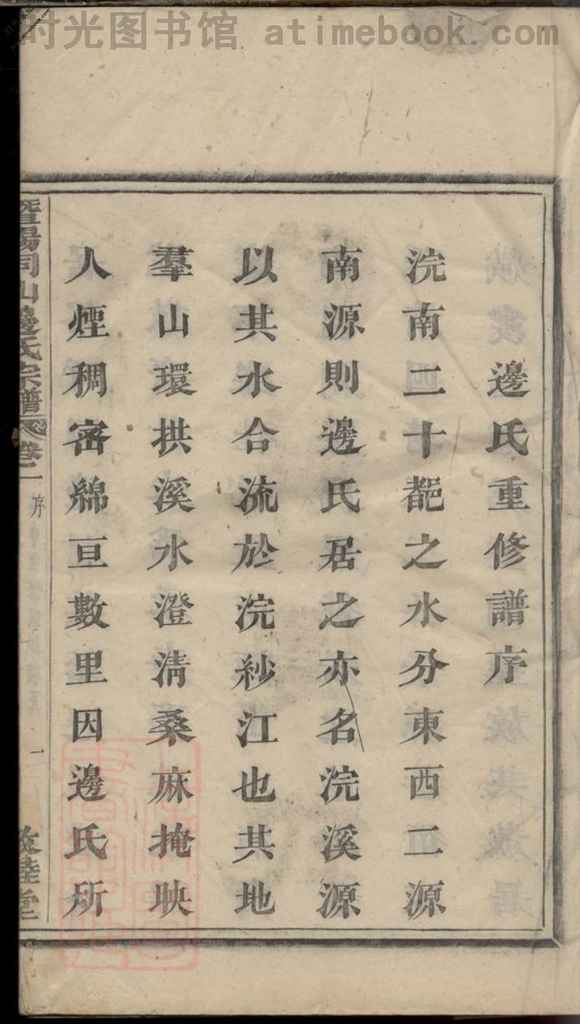 时光图书馆 atimebook.com
邊氏重修譜序
浣南二十都之水分東西二源
南源則邊氏居之亦名浣溪源
以其水合流於浣紗江也其地
羣山環拱溪水澄清桑麻掩映
人煙稠密綿亘數里因邊氏所
暨陽同山邊氏宗譜
卷一
序
一
敦睦堂